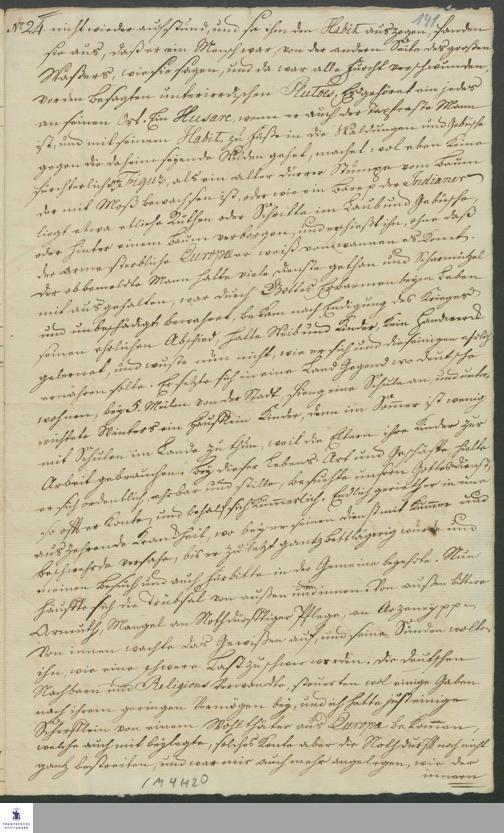 141.
No 24. nicht wieder aufstund, und sie ihm den Habit auszogen, fanden
sie aus, daß er ein Mensch war, von der andern Seite des großen
Waßers, wie sie sagen, und da war alle Furcht verschwunden,
vor den besagten unterirrdischen Plutons, Existiret ein jedes
an seinem Ort. Ein Husare, wenn er auch der tapferste Mann
ist, und mit seinem Habit, zu Fuße in die Waldungen und Gebüsche
gegen die daheim seyende Wilden gehet, machet wol eben keine
fürchterlichere Figur, als ein alter dürrer Stumpe vom Baum
der mit Moß bewachsen ist, oder wie ein der Indianer
liegt etwa etliche Ruthen oder Schritte im Laub und Gebüsche,
oder hinter einem Baum verborgen, und erschießt ihn, ohne daß
der arme sterbliche Europaeer weiß von wannen es komt.
Der obbemeldte Mann hatte viele Dienste gethan und Scharmützel
mit ausgehalten, war durch Gottes Erbarmen beym Leben
und unbeschädigt bewahret, bekam nach Endigung des Krieges
seinen ehrlichen Abschied, hatte Weib und Kinder, kein Handwerck
gelernet, und wuste nun nicht, wie er sich und die seinigen ehrlich
ernähren solte. Er setzte sich in eine Land Gegend wo deutsche
wohnen, bey 5. Meilen von der Stadt, fieng eine Schule an, und unter-
richtete Winters ein Häufflein Kinder, denn im Sommer ist wenig
mit Schulen im Lande zu thun, weil die Eltern ihre Kinder zur
Arbeit gebrauchen. Bey dieser Lebens-Art und Geschäfte hatte
er sich ordentlich, ehrbar und stille, besuchte unsern Gottesdienst,
so offt er konte, und behalf sich kümmerlich. Endlich gerieth er in eine
auszehrende Kranckheit, wo bey er seinen Dienst mit Kummer und
Beschwehrde versahe, bis er zuletzt gantz bettlägerig wurde und
meinen Besuch und auch Fürbitte in der Gemeine begehrte. Nun
häuffte sich die Trübsal von außen und innen. Von außen bittere
Armuth, Mangel an Nothdürfftiger Pflege, an Arzeney ppp.
Von innen wachte das Gewißen auf, und seine Sünden wolten
ihm, wie eine schwere Last zu schwer werden. Die deutschen
Nachbarn und Religions Verwandte, steuerten wol einige Gaben
nach ihrem geringen Vermögen bey, und ich hatte just einige
Scherfflein von einem Wohlthäter aus Europa bekommen,
welche auch mit beylegte, solches konte aber die Nothdurfft noch nicht
gantz bestreiten, und war mir auch mehr angelegen, wie der
innern
1 M 4 H 20
FRANCKESCHE
STIFTUNGEN